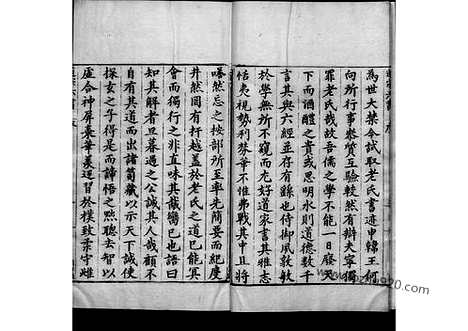 為世大禁今試取老氏書迹申韓王何
向所行事察質互驗較然有辯夫寧獨
罪老氏哉故吾儒之學不能一日廢天
下而酒醴之貴或思明水則道德數千
言其與六經並存有繇也侍御風敦敏
於學無所不窺而尤好道家言其雅志
恬夷視勢利芬華不惟弗戰其中且將
嗒然忘之按部所至率先簡要而紀度
井然固有扞越蓋於老氏之道已能冥
會而獨行之非直味其哉臠已也語曰
知其解者旦暮遇之公誠其人哉顧不
自有其道而出諸笥藏以示天下誠使
探玄之子得是而諦悟之黜聰去智以
虛合神屏囂華美返習於樸致柔守雌
www.pr2020.com